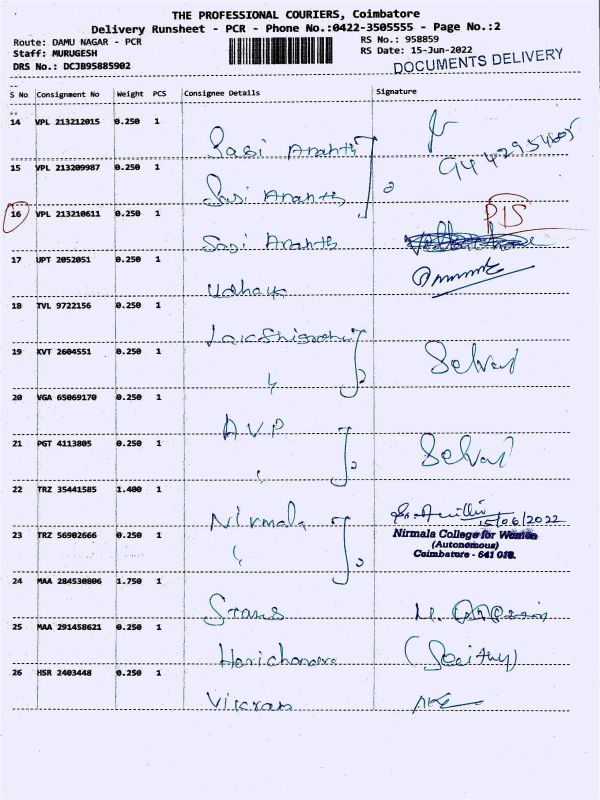 THE PROFESSIONAL COURIERS, Coimbatore
Delivery Runsheet - PCR - Phone No.:0422-3505555 - Page No.:2
Route: DAMU NAGAR - PCR
RS No.: 958859
Staff: MURUGESH
RS Date: 15-Jun-2022
DRS No.: DCJB95885902
DOCUMENTS DELIVERY
S No Consignment No Weight PCS Consignee Details Signature
14 VPL 213212015 0.250 1
Sasi Ananth
15 VPL 213209987 0.250 1
Sasi Ananth
16 VPL 213210611 0.250 1
PIS
Sasi Ananth
17 UPT 2052051 0.250 1
Udhaya
18 TVL 9722156 0.250 1
19 KVT 2604551 0.250 1
Selvas
20 VGA 65069170 0.250 1
A.V.P
21 PGT 4113805 0.250 1
Selvas
22 TRZ 35441585 1.400 1
Nirmala
15/06/2022
23 TRZ 56902666 0.250 1
Nirmala College for Women
(Autonomous)
Coimbatore - 641 018.
24 MAA 284530806 1.750 1
25 MAA 291458621 0.250 1
Harichandra
26 HSR 2403448 0.250 1
Vikram